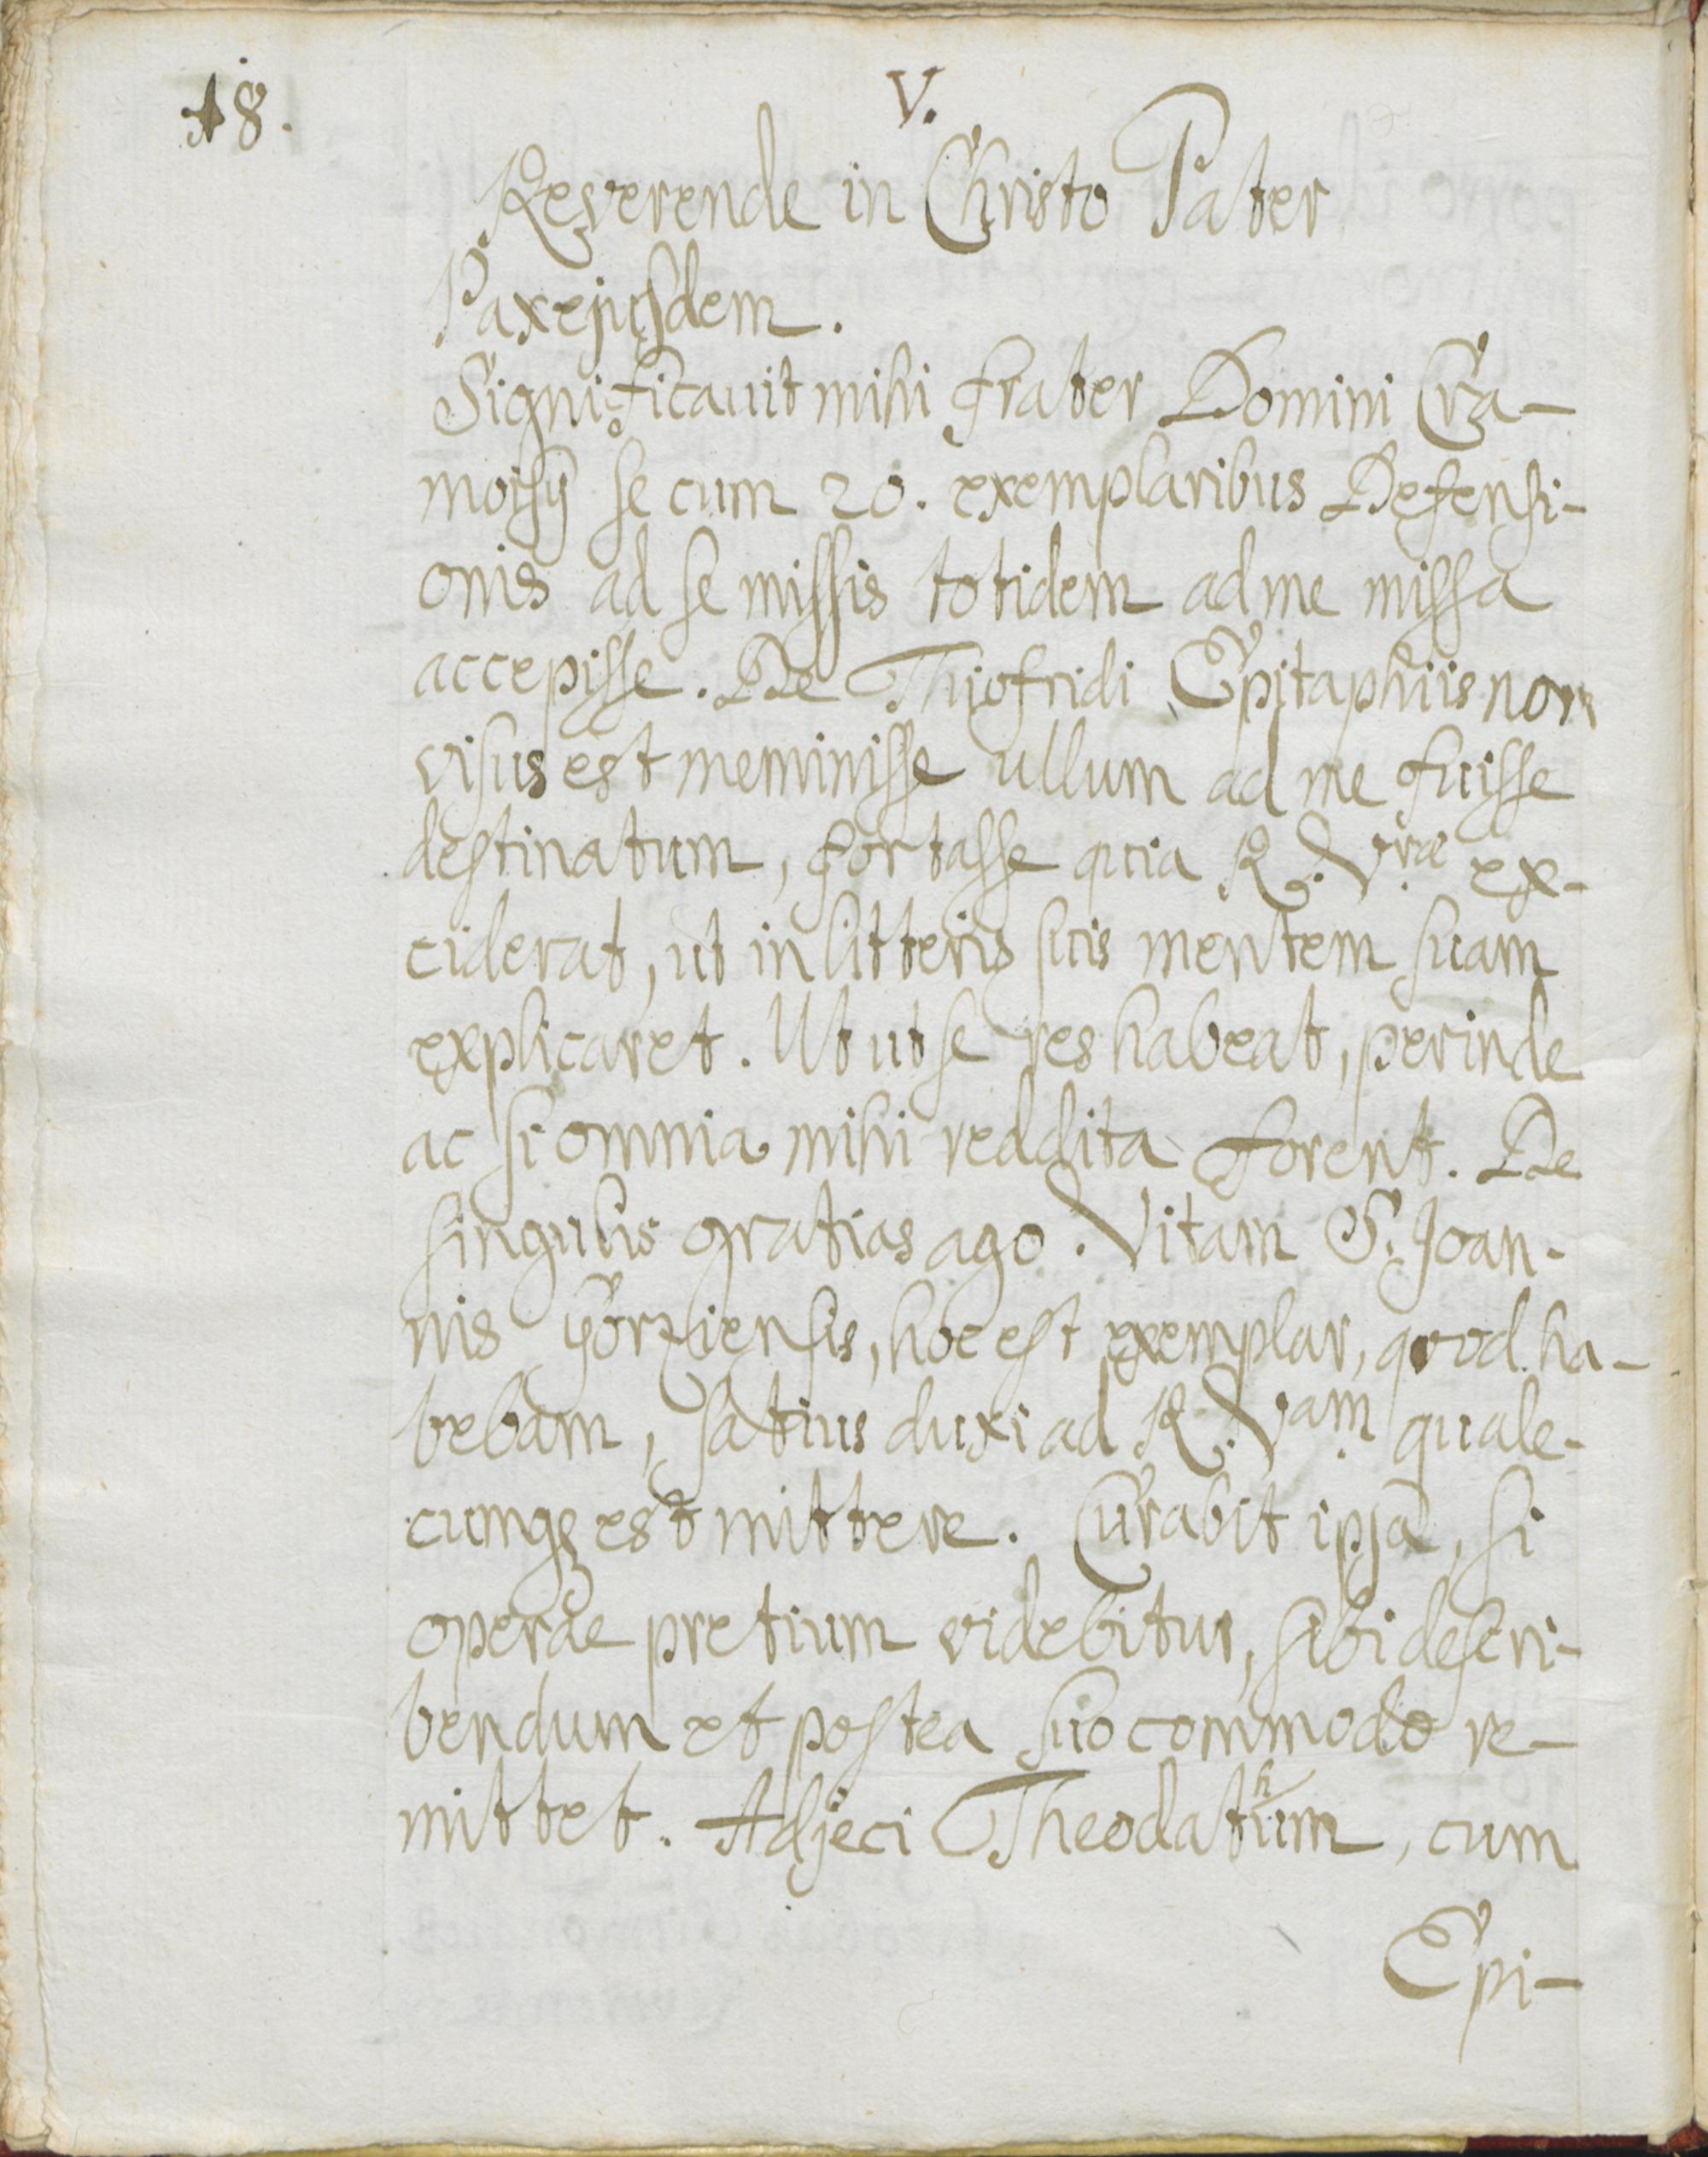 18.
V.
Reverende in Christo Pater
Pax ejusdem.
Significauit mihi frater Domini Cra-
moisij se cum 20. exemplaribus Defensi-
onis ad se missis totidem ad me missa
accepisse. De Thiofridi Epitaphiis non
visus est meminisse ullum ad me fuisse
destinatum, fortasse quia R. Vræ ex-
ciderat, ut in litteris suis mentem suam
explicaret. Ut ut se res habeat, perinde
ac si omnia mihi reddita forent. De
singulis gratias ago. Vitam S. Joan-
nis Gorziensis, hoc est exemplar, quod ha-
bebam, satius duxi ad R. Vam quale-
cumqꝫ est mittere. Curabit ipsa, si
operae pretium videbitur, sibi descri-
bendum et postea suo commodo re-
mittet. Adjeci Theodatum, cum
Epi-